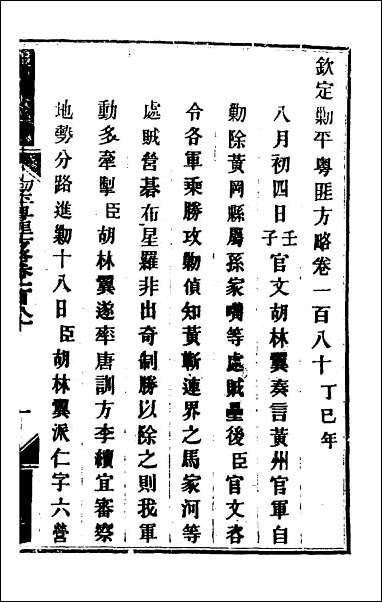 欽定勦平粵匪方略卷一百八十丁巳年
八月初四日壬子官文胡林翼奏言黃州官軍自
勦除黃岡縣屬孫家嘴等處賊壘後臣官文咨
令各軍乘勝攻勦偵知黃蘄連界之馬家河等
處賊營碁布星羅非出奇制勝以除之則我軍
動多牽掣臣胡林翼遂率唐訓方李續宜審察
地勢分路進勦十八日臣胡林翼派仁字六營